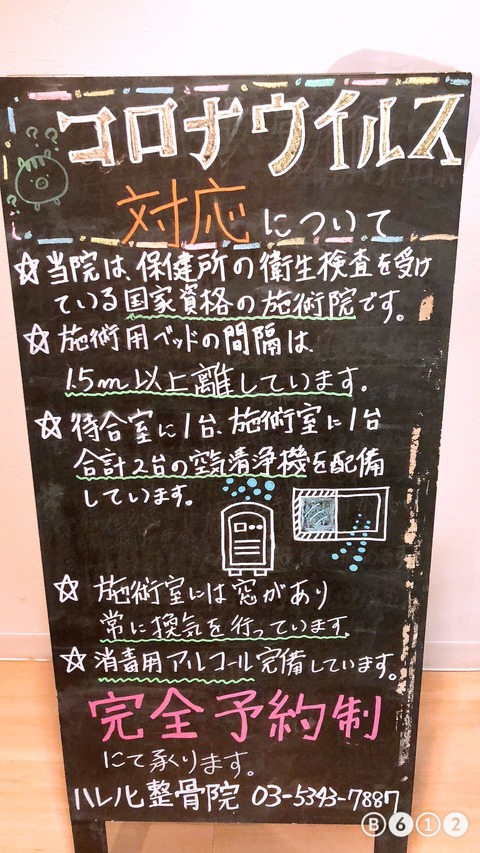 コロナウイルス
対応について
☆当院は、保健所の衛生検査を受け
ている国家資格の施術院です。
☆施術用ベッドの間隔は
1.5m以上離しています。
☆待合室に1台、施術室に1台
合計2台の空気清浄機を配備
しています。
☆施術室には窓があり
常に換気を行っています。
☆消毒用アルコール完備しています。
完全予約制
にて承ります。
ハレノヒ整骨院 03-5343-7887
B612